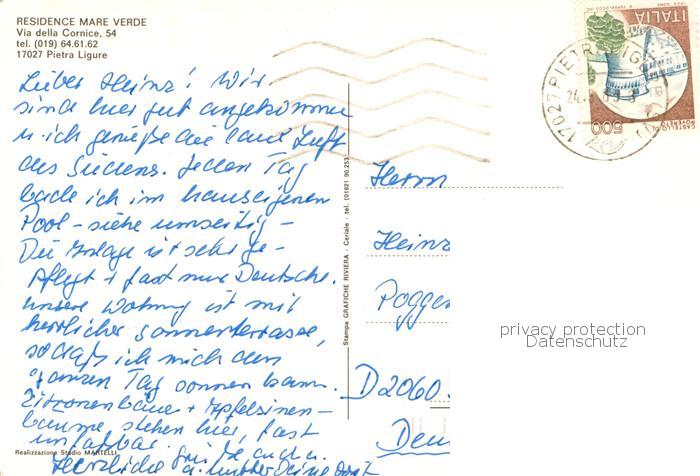 RESIDENCE MARE VERDE
Via della Cornice, 54
tel. (019) 64.61.62
17027 Pietra Ligure
Lieber Heinz! Wir
sind hier gut angekommen
u. ich genieße die laue Luft
des Südens. Jeden Tag
bade ich im hauseigenen
Pool - siehe umseitig -
Die Anlage ist sehr ge-
pflegt + fast nur Deutsche.
Unsere Wohnung ist mit
herrlicher Sonnenterrasse,
sodaß ich mich den
ganzen Tag sonnen kann.
Zitronenbäume + Apfelsinen-
bäume stehen hier, fast
unfaßbar.
Herzliche Grüße auch
Realizzazione Studio MARTELLI
Stampa GRAFICHE RIVIERA - Ceriale - tel. (0182) 90.253
ITALIA
500
CASTELLO DI
17027 PIETRA LIGURE
Herrn
Heinz
Pogge
D2060
Deu
privacy protection
Datenschutz